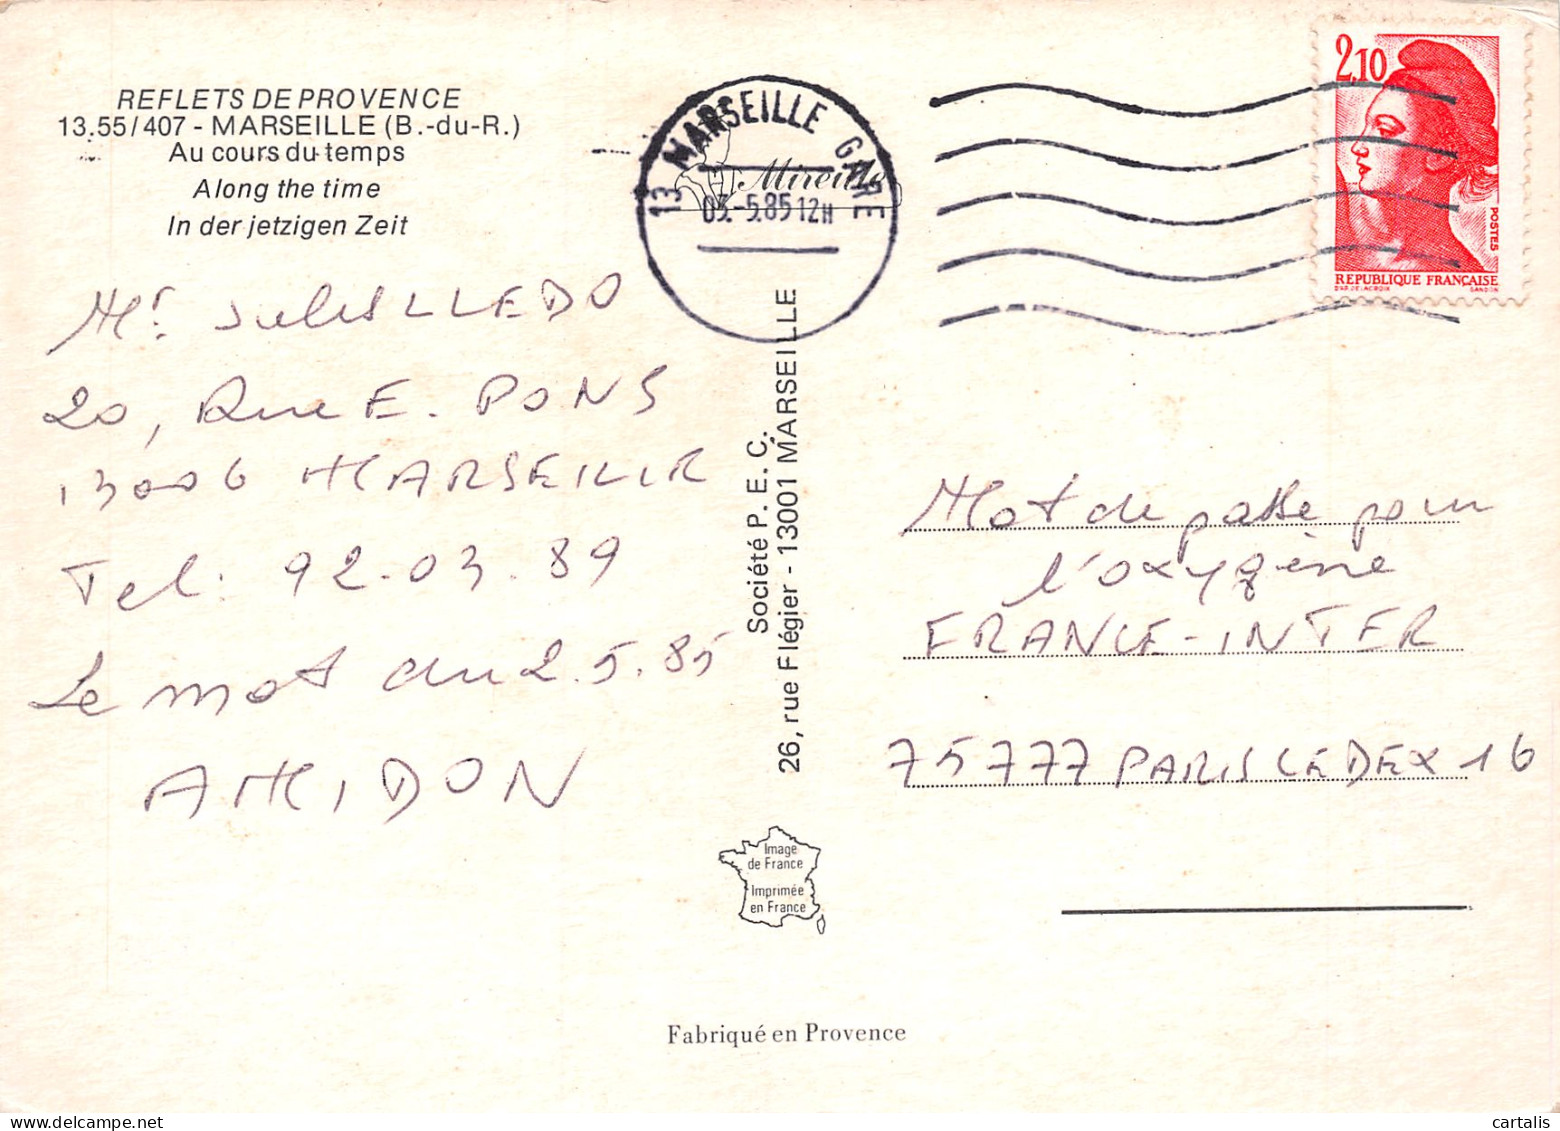 REFLETS DE PROVENCE
13.55/407 - MARSEILLE (B.-du-R.)
Au cours du temps
Along the time
In der jetzigen Zeit
Mr. Jules LLEDO
20, Rue E. PONS
13006 MARSEILLE
Tel: 92.03.89
Le mot du 2.5.85
AMIDON
13 MARSEILLE GARE
03.-5.85 12H
Mireille
Société P. E. C.
26, rue Flégier - 13001 MARSEILLE
Image
de France
Imprimée
en France
Fabriqué en Provence
2,10
POSTES
REPUBLIQUE FRANÇAISE
D'AP. DELACROIX GANDON
Mot de passe pour
l'oxygène
FRANCE-INTER
75777 PARIS CEDEX 16
cartalis